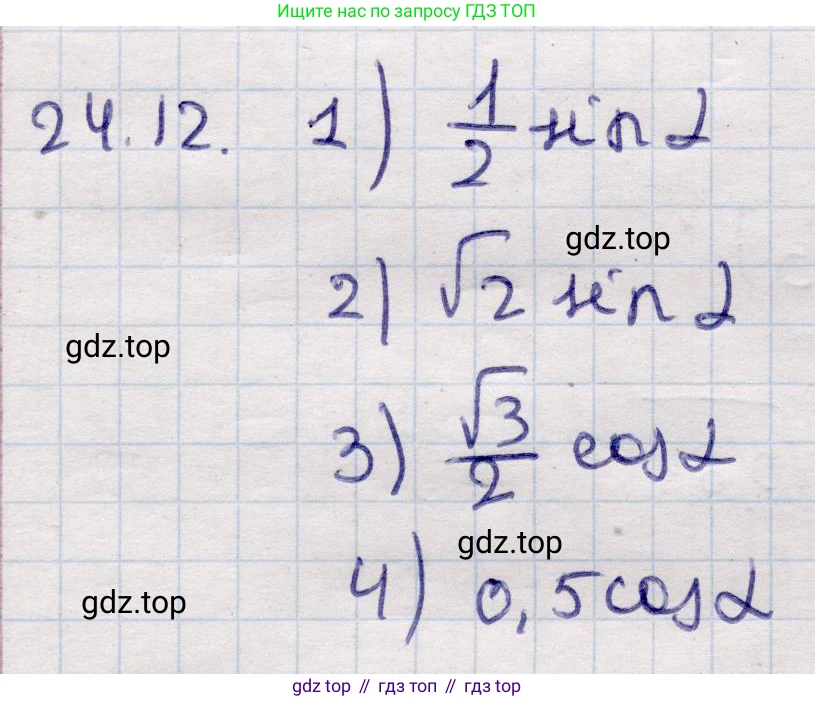 Ищите нас по запросу ГДЗ ТОП
24.12. 1) 1/2 sin α
gdz.top
2) √2 sin α
gdz.top
3) √3/2 cos α
gdz.top
4) 0,5 cos α
gdz.top
gdz top // гдз топ // gdz_top